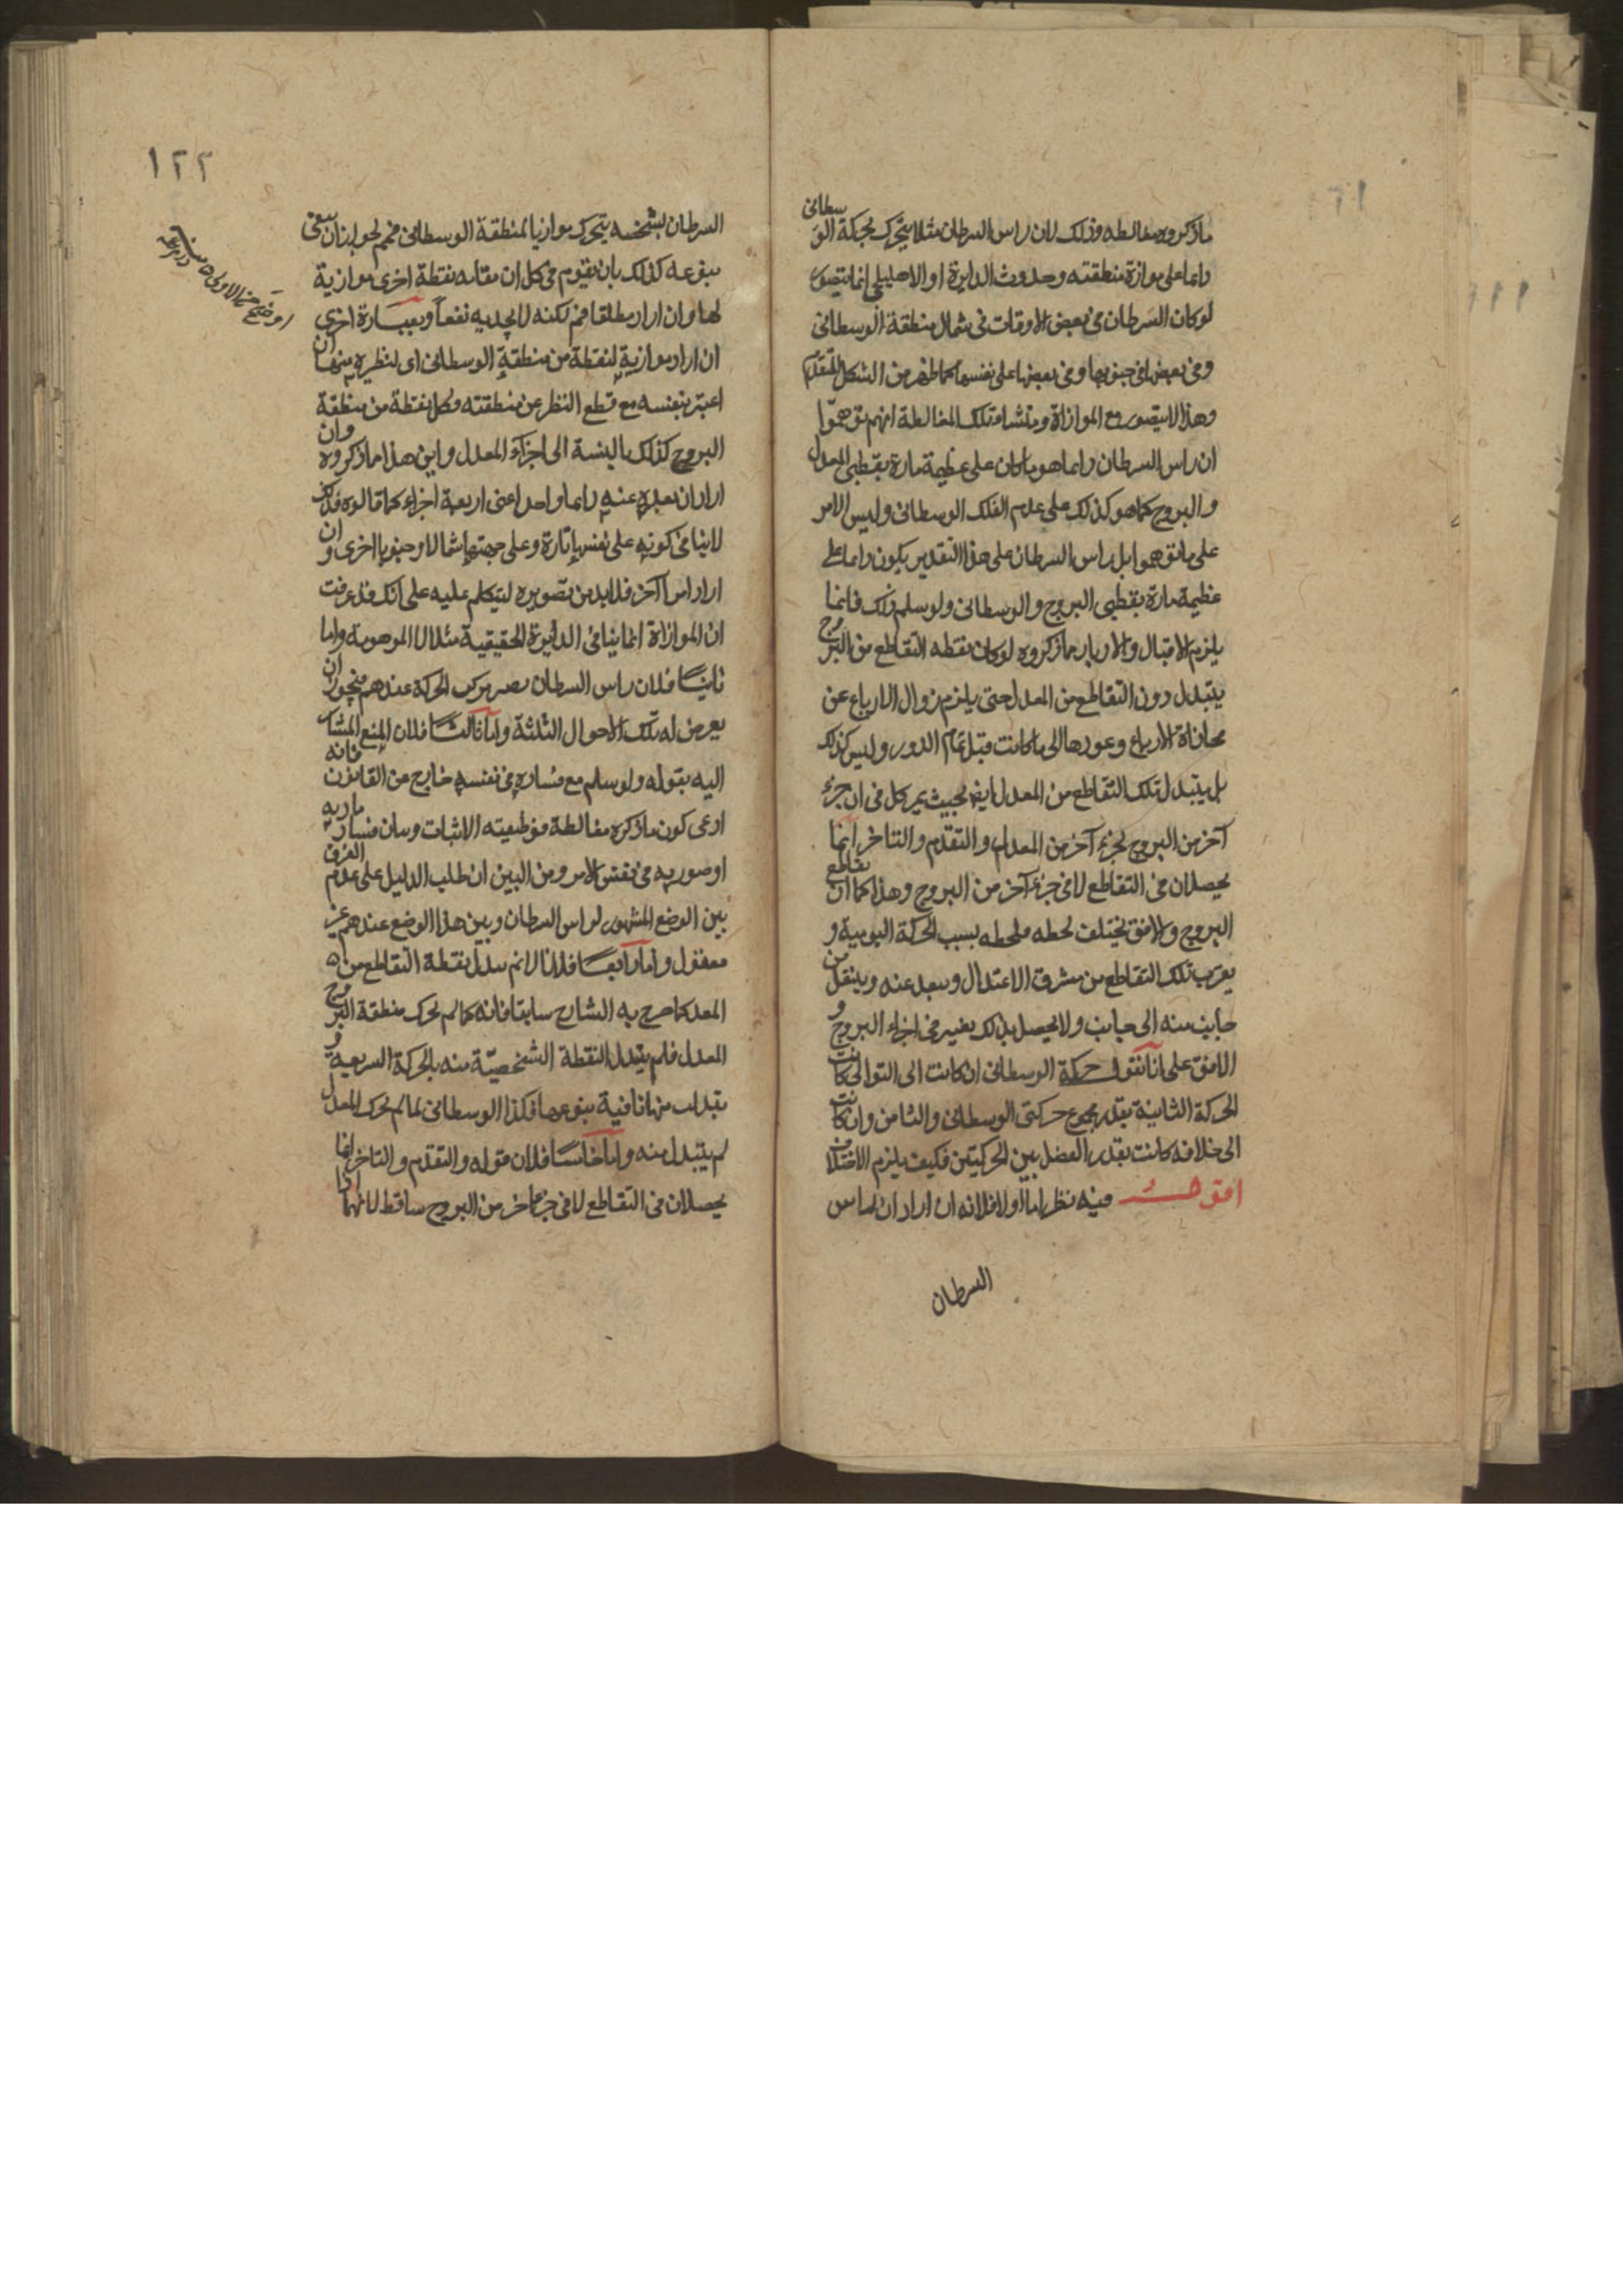 ما ذكروه مغالطه وذلك لان راس السرطان مثلا يتحرك بحركة الوسطانى
دايما على موازاة منطقته وحدوث الدايرة او الاهليلجى انما يتصور
لو كان السرطان فى بعض الاوقات فى شمال منطقة الوسطانى
وفى بعضها فى جنوبها وفى بعضها على نفسها كما ظهر من الشكل المتقدم
وهذا لا يتصور مع الموازاة ومنشاء تلك المغالطة انهم توهموا
ان راس السرطان دايما هو ما كان على عظيمة مارة بقطبى المعدل
والبروج كما هو كذلك على عدم الفلك الوسطانى وليس الامر
على ما توهموا بل راس السرطان على هذا التقدير يكون دايما على
عظيمة مارة بقطبى البروج والوسطانى ولو سلم ذلك فانما
يلزم الاقبال والادبار ما ذكروه لو كان نقطه التقاطع من البروج
يتبدل دون التقاطع من المعدل حتى يلزم زوال الارباع عن
محاذاة الارباع وعودها الى ما كانت قبل تمام الدور وليس كذلك
بل يتبدل تلك التقاطع من المعدل ايضا بحيث يمر كل فى ان جزء
آخر من البروج بجزء آخر من المعدل والتقدم والتاخر انما
يحصلان فى التقاطع لا فى جزء آخر من البروج وهذا كما ان تقاطع
البروج والافق يختلف لحظه فلحظه بسبب الحركة اليومية و
يقرب تلك التقاطع من مشرق الاعتدال ويبعد عنه وينتقل من
جانب منه الى جانب ولا يحصل بذلك تغيير فى اجزاء البروج و
الافق على انا نقول حركة الوسطانى ان كانت الى التوالى كانت
الحركة الثانية بقدر مجموع حركتى الوسطانى والثامن وان كانت
الى خلافه كانت بقدر الفضل بين الحركيتين فكيف يلزم الاختلاف
اقول فيه نظر اما اولا فلانه ان اراد ان راس
السرطان
١٢٢
السرطان بشخصه يتحرك موازيا لمنطقة الوسطانى فمم لجواز ان يبقى
بنوعه كذلك بان يقوم فى كل ان مقامه نقطة اخرى موازية
لها وان اراد مطلقا فم لكنه لا يجديه نفعا وبعبارة اخرى
ان اراد موازية لنقطة من منطقة الوسطانى اى لنظيره منها ان
اعتبر بنفسه مع قطع النظر عن منطقته وكل نقطة من منطقة
البروج كذلك بالنسة الى اجزاء المعدل واين هذا ما ذكروه وان
اراد ان بعده عنه دايما واحد اعنى اربعة اجزاء كما قالوه فذلك
لا ينافى كونه على نفسها تارة وعلى جهتها شمالا وجنوبا اخرى وان
اراد امرا آخر فلا بد من تصويره ليتكلم عليه على انك قد عرفت
ان الموازاة انما ينافى الدايرة الحقيقية مثلا لا الموهومة واما
ثانيا فلان راس السرطان مركب الحركة عندهم فيجوز ان
يعرض له تلك الاحوال الثلثة واما ثالثا فلان المنع المشار
اليه بقوله ولو سلم مع فساده فى نفسه خارج عن القانون فانه
ادعى كون ما ذكره مغالطة فوظيفته الاثبات وبيان فساد مادية
او صوريه فى نفس الامر ومن البين ان طلب الدليل على عدم الفرق
بين الوضع المشهور لراس السرطان وبين هذا الوضع عندهم غير
معقول واما رابعا فلانا لا نم تبدل نقطة التقاطع من
المعدل كما صرح به الشارح سابقا فانه كما لم يحرك منطقة البروج
المعدل فلم يتبدل النقطة الشخصية منه بالحركة السريعة و
تبدلت منها نافية بنوعها فكذا الوسطانى لما لم يحرك المعدل
لم يتبدل منه واما خامسا فلان قوله والتقدم والتاخر انما
يحصلان فى التقاطع لا فى جزء آخر من البروج ساقط لانهما اذا